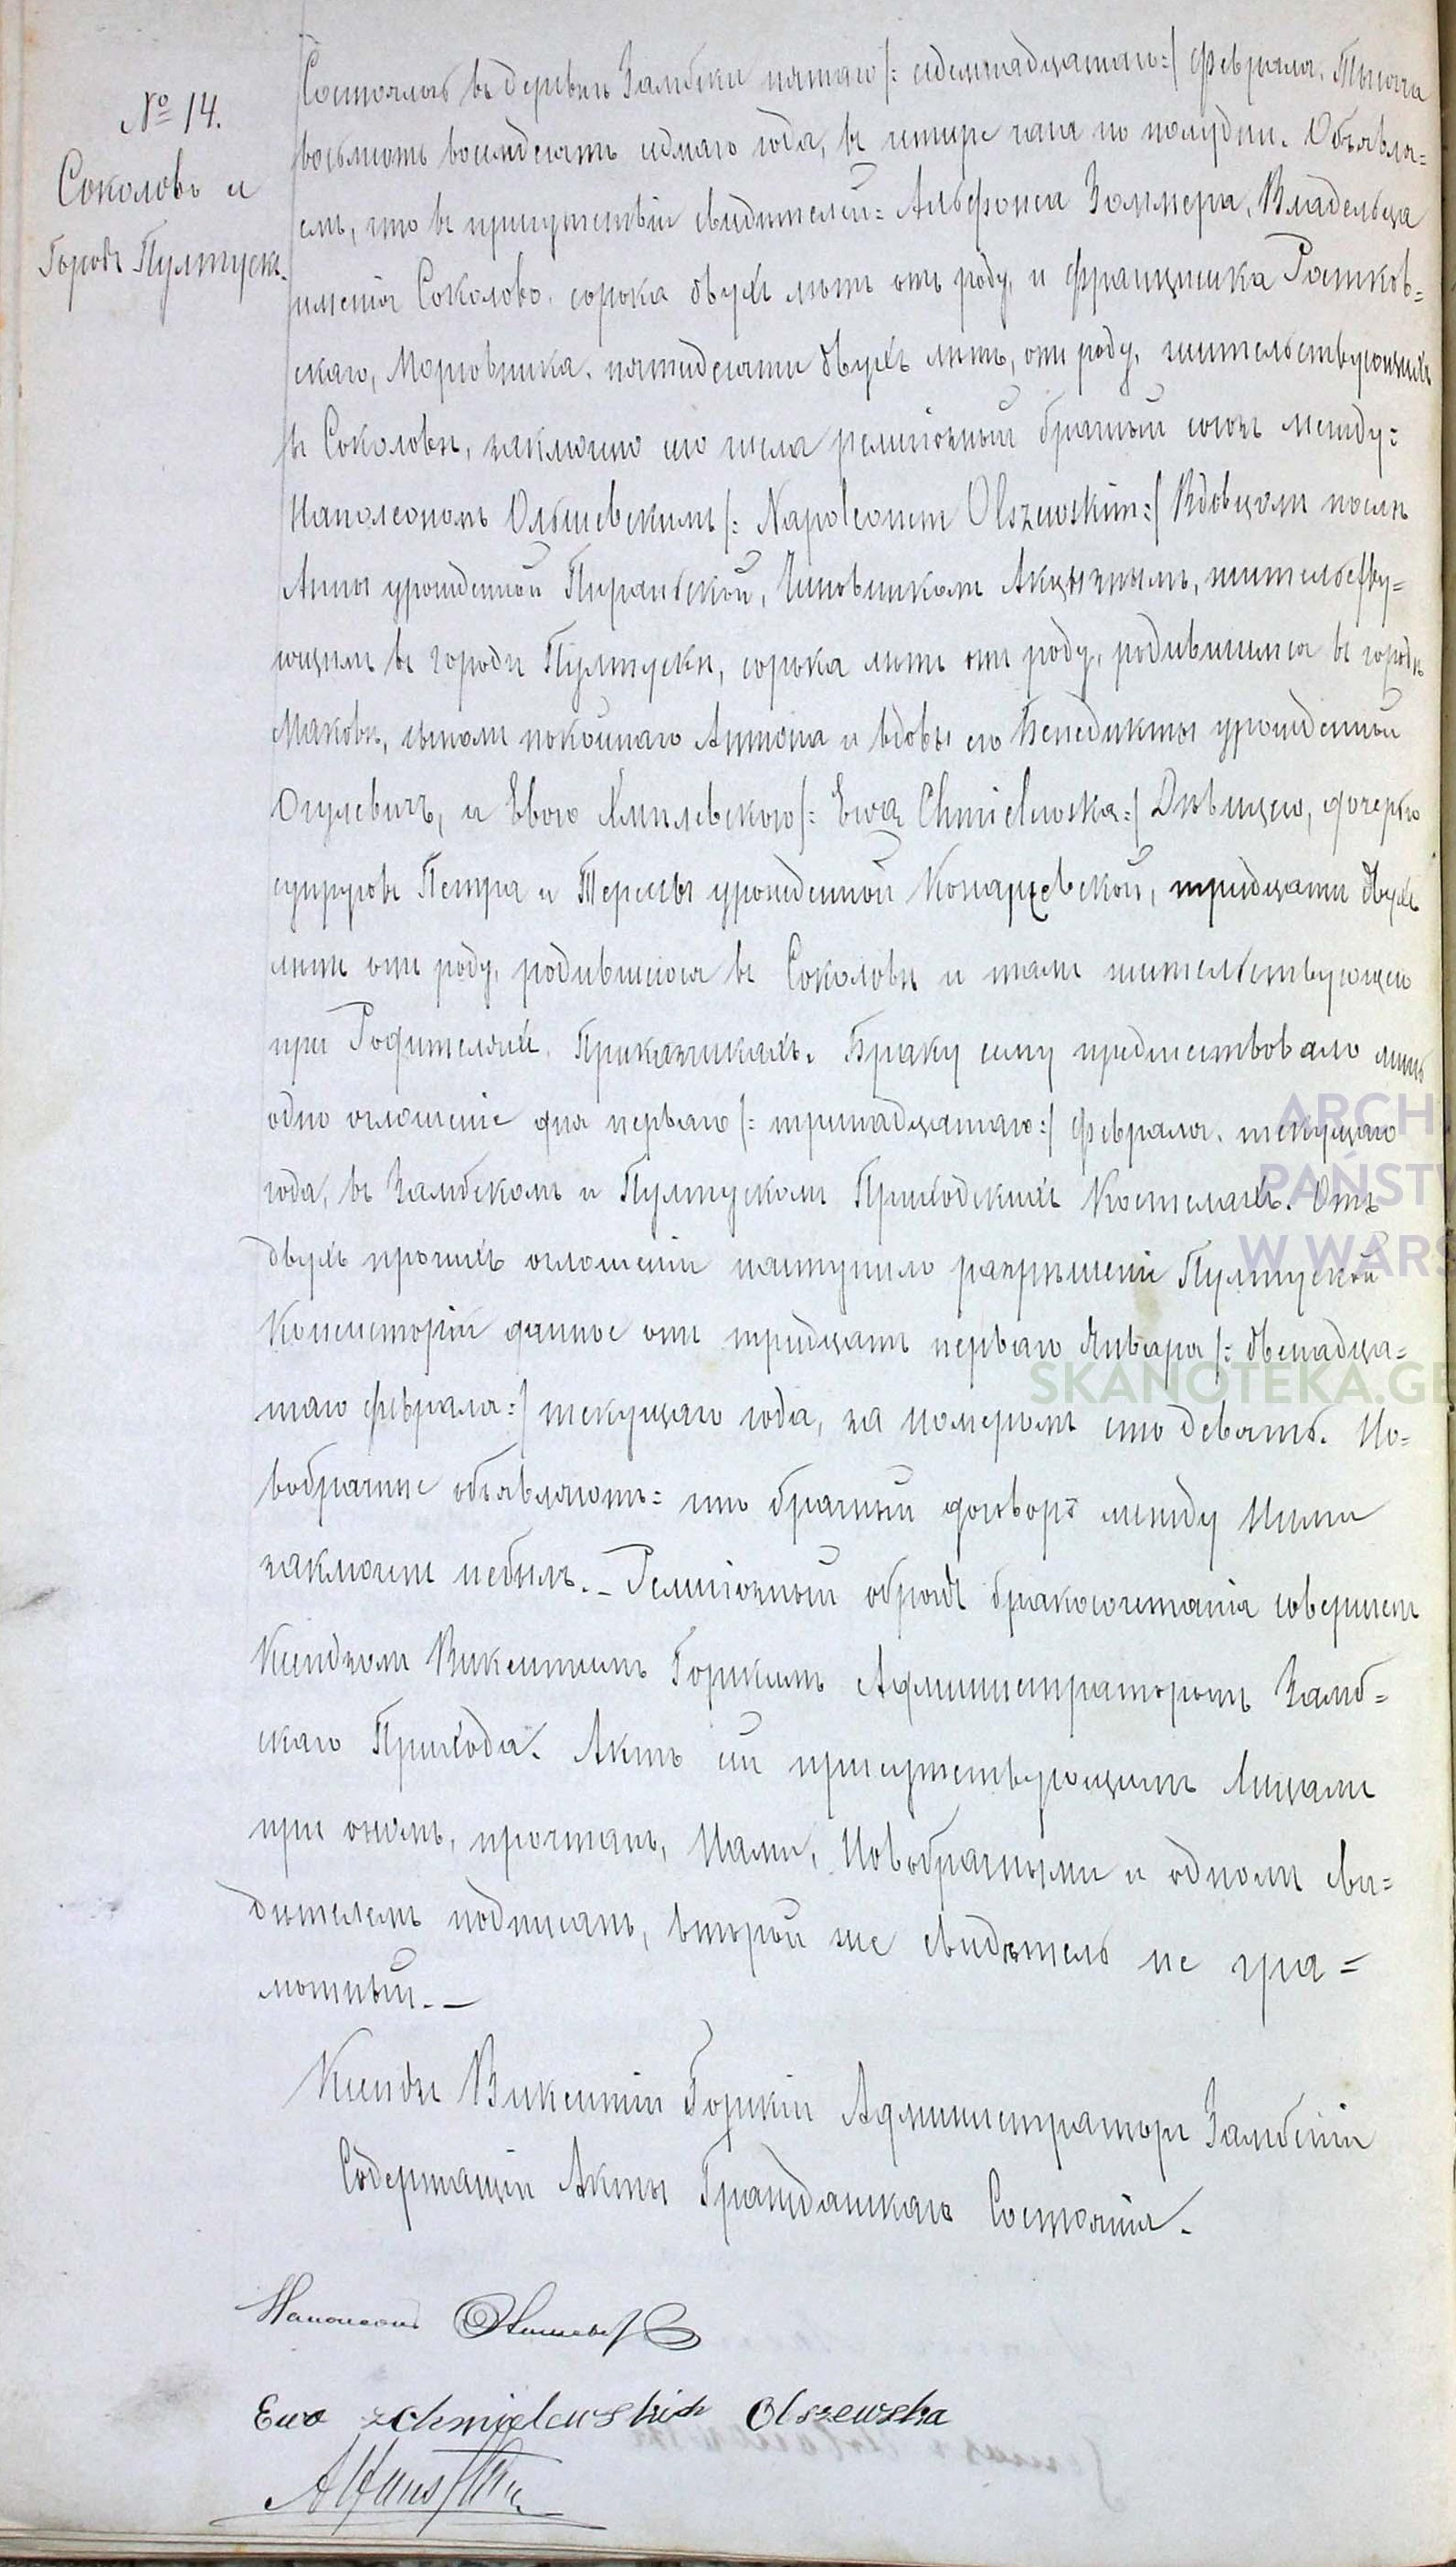 № 14.
Соколово и
Городъ Пултускъ.
Состоялось въ деревнѣ Замбски пятаго /: седмнадцатаго :/ Февраля, Тысяча
восьмсотъ восемдесятъ седмаго года, въ четыре часа по полудни. Объявля=
емъ, что въ присутствіи свидетелей: Альфонса Владельца
имѣнія Соколово, сорока двухъ лѣтъ отъ роду, и Францишка Ростков=
скаго, пятидесяти двухъ лѣтъ, отъ роду, жительствующихъ
въ Соколовѣ, заключено сего числа религіозный брачный союзъ между:
Наполеономъ Ольшевскимъ /: Napoleonem Olszewskim :/ Вдовцомъ послѣ
Анны урожденной Чиновникомъ Акцызнымъ, жительству=
ющимъ въ городѣ Пултускѣ, сорока лѣтъ отъ роду, родившимся въ городѣ
Маковѣ, сыномъ покойнаго Антона и вдовы его Бенедикты урожденной
Огулевичъ, и Евою Хмилевскою /: Ewą Chmielewska :/ Дѣвицею, дочерью
супруговъ Петра и Тересы урожденной Конаржевской, тридцати двухъ
лѣтъ отъ роду, родившеюся въ Соколовѣ и тамъ жительствующею
при Родителяхъ Приказчикахъ. Браку сему предшествовало лишь
одно оглошеніе дня перваго /: тринадцатаго :/ Февраля, текущаго
года, въ Замбскомъ и Пултускомъ Приходскихъ Костелахъ. Отъ
двухъ прочихъ оглошеній наступило разрѣшеніе Пултуской
Консисторіи данное отъ тридцать перваго Января /: двенадца=
таго февраля :/ текущаго года, за номеромъ сто девять. Но=
вобрачные объявляютъ: что брачный договоръ между Ними
заключенъ небылъ. _ Религіозный обрядъ бракосочетанія совершенъ
Ксендзомъ Викентимъ Горскимъ Администраторомъ Замб=
скаго Прихода. Актъ сей присутствующимъ Лицамъ
при ономъ, прочтанъ, Нами, Новобрачными и однымъ сви=
дѣтелемъ подписанъ, второй же свидѣтель не гра=
мотный. _
Ксендзъ Викентій Горскій Администраторъ Замбскій
Содержащій Акты Гражданскаго Состоянія.
Наполеонъ
Ewa z Chmielewskich Olszewska
ARCH
PAŃSTW
W WARS
SKANOTEKA.GE